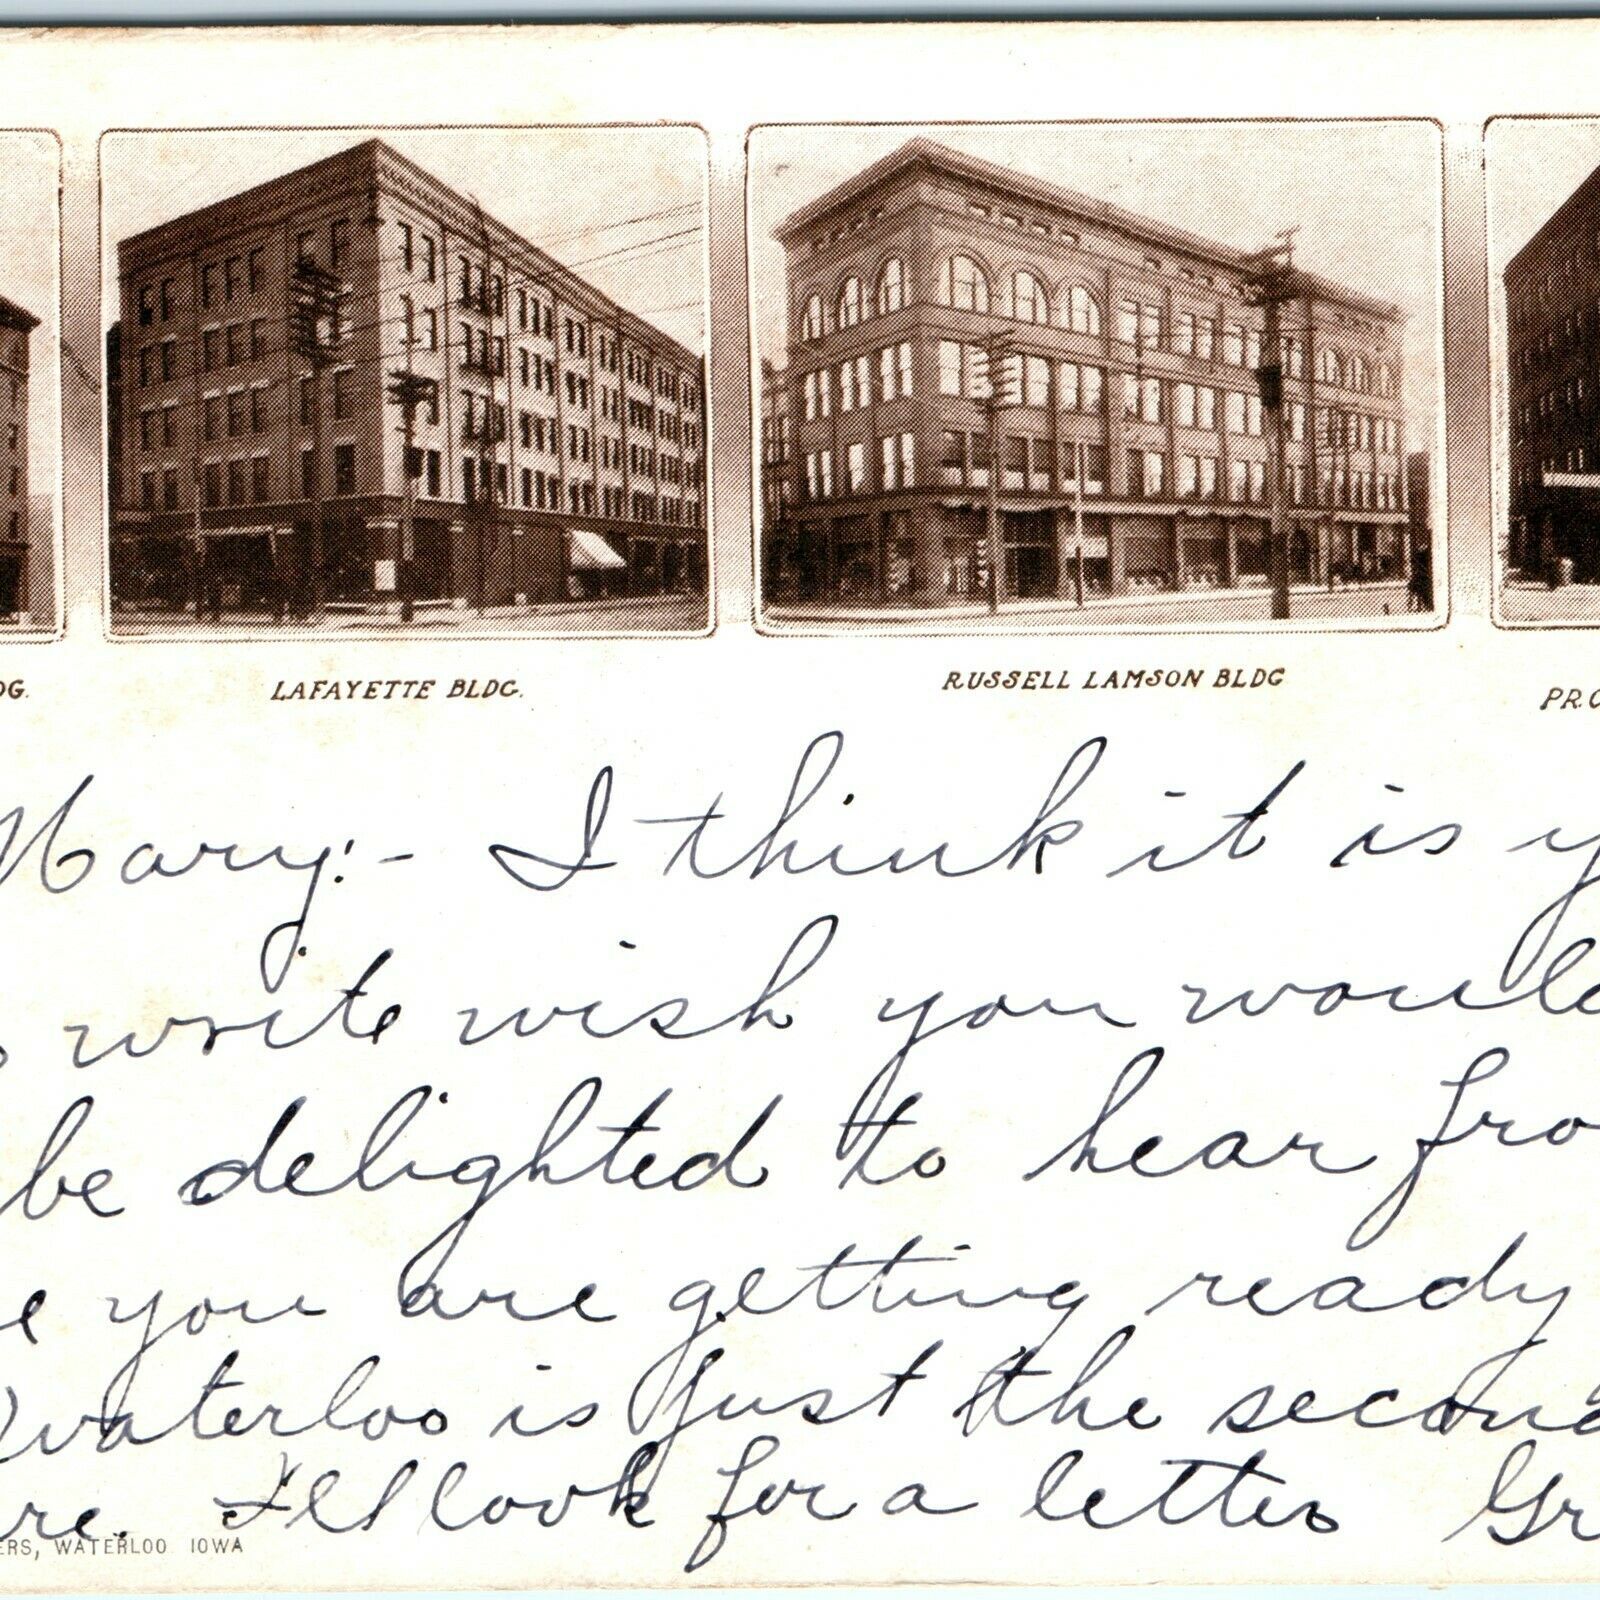 DG. LAFAYETTE BLDG. RUSSELL LAMSON BLDG PRC
Mary:- I think it is y
write wish you would
be delighted to hear fro
e you are getting ready
Waterloo is just the second
re. I'll look for a letter Gr
ERS, WATERLOO IOWA